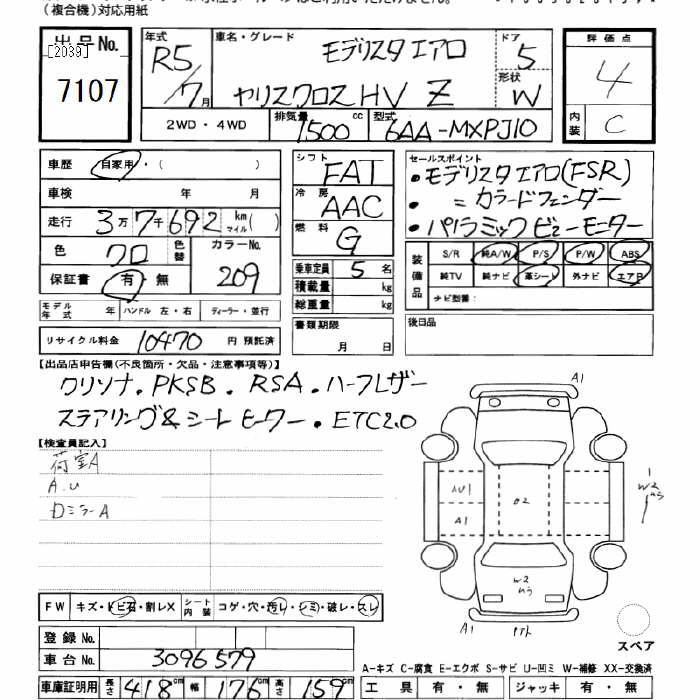 (複合機)対応用紙
出品No. [2039] 7107
年式 R5/7月 車名・グレード モデリスタエアロ ヤリスクロスHV Z ドア 5 形状 W
評価点 4 内装 C
2WD・4WD 排気量 1500cc 型式 6AA-MXPJ10
車歴 自家用・( )
車検 年 月
走行 3万7千692 km マイル( )
色 クロ 色替 カラーNo. 209
保証書 有・無
モデル年式 年 ハンドル 左・右 ディーラー・並行
リサイクル料金 10470 円 預託済
シフト FAT
冷房 AAC
燃料 G
乗車定員 5 名
積載量 kg
総重量 kg
書類期限 月 日
セールスポイント
・モデリスタエアロ(FSR)
・〃カラードフェンダー
・パノラミックビューモニター
装備品 S/R 純A/W P/S P/W ABS
純TV 純ナビ 革シート 外ナビ エアB
ナビ型番:
後日品
【出品店申告欄(不良箇所・欠品・注意事項等)】
クリソナ.PKSB.RSA.ハーフレザー
ステアリング&シートヒーター.ETC2.0
【検査員記入】
荷室A
A.U
DミラーA
A1
AU1
A1
U2
1
W2
W2
A1
FW キズ・トビ石・割レX シート内装 コゲ・穴・汚レ・シミ・破レ・スレ
スペア
登録No.
車台No. 3096579
車庫証明用 長さ 418cm 幅 176cm 高さ 159cm
A-キズ C-腐食 E-エクボ S-サビ U-凹ミ W-補修 XX-交換済
工具 有・無 ジャッキ 有・無